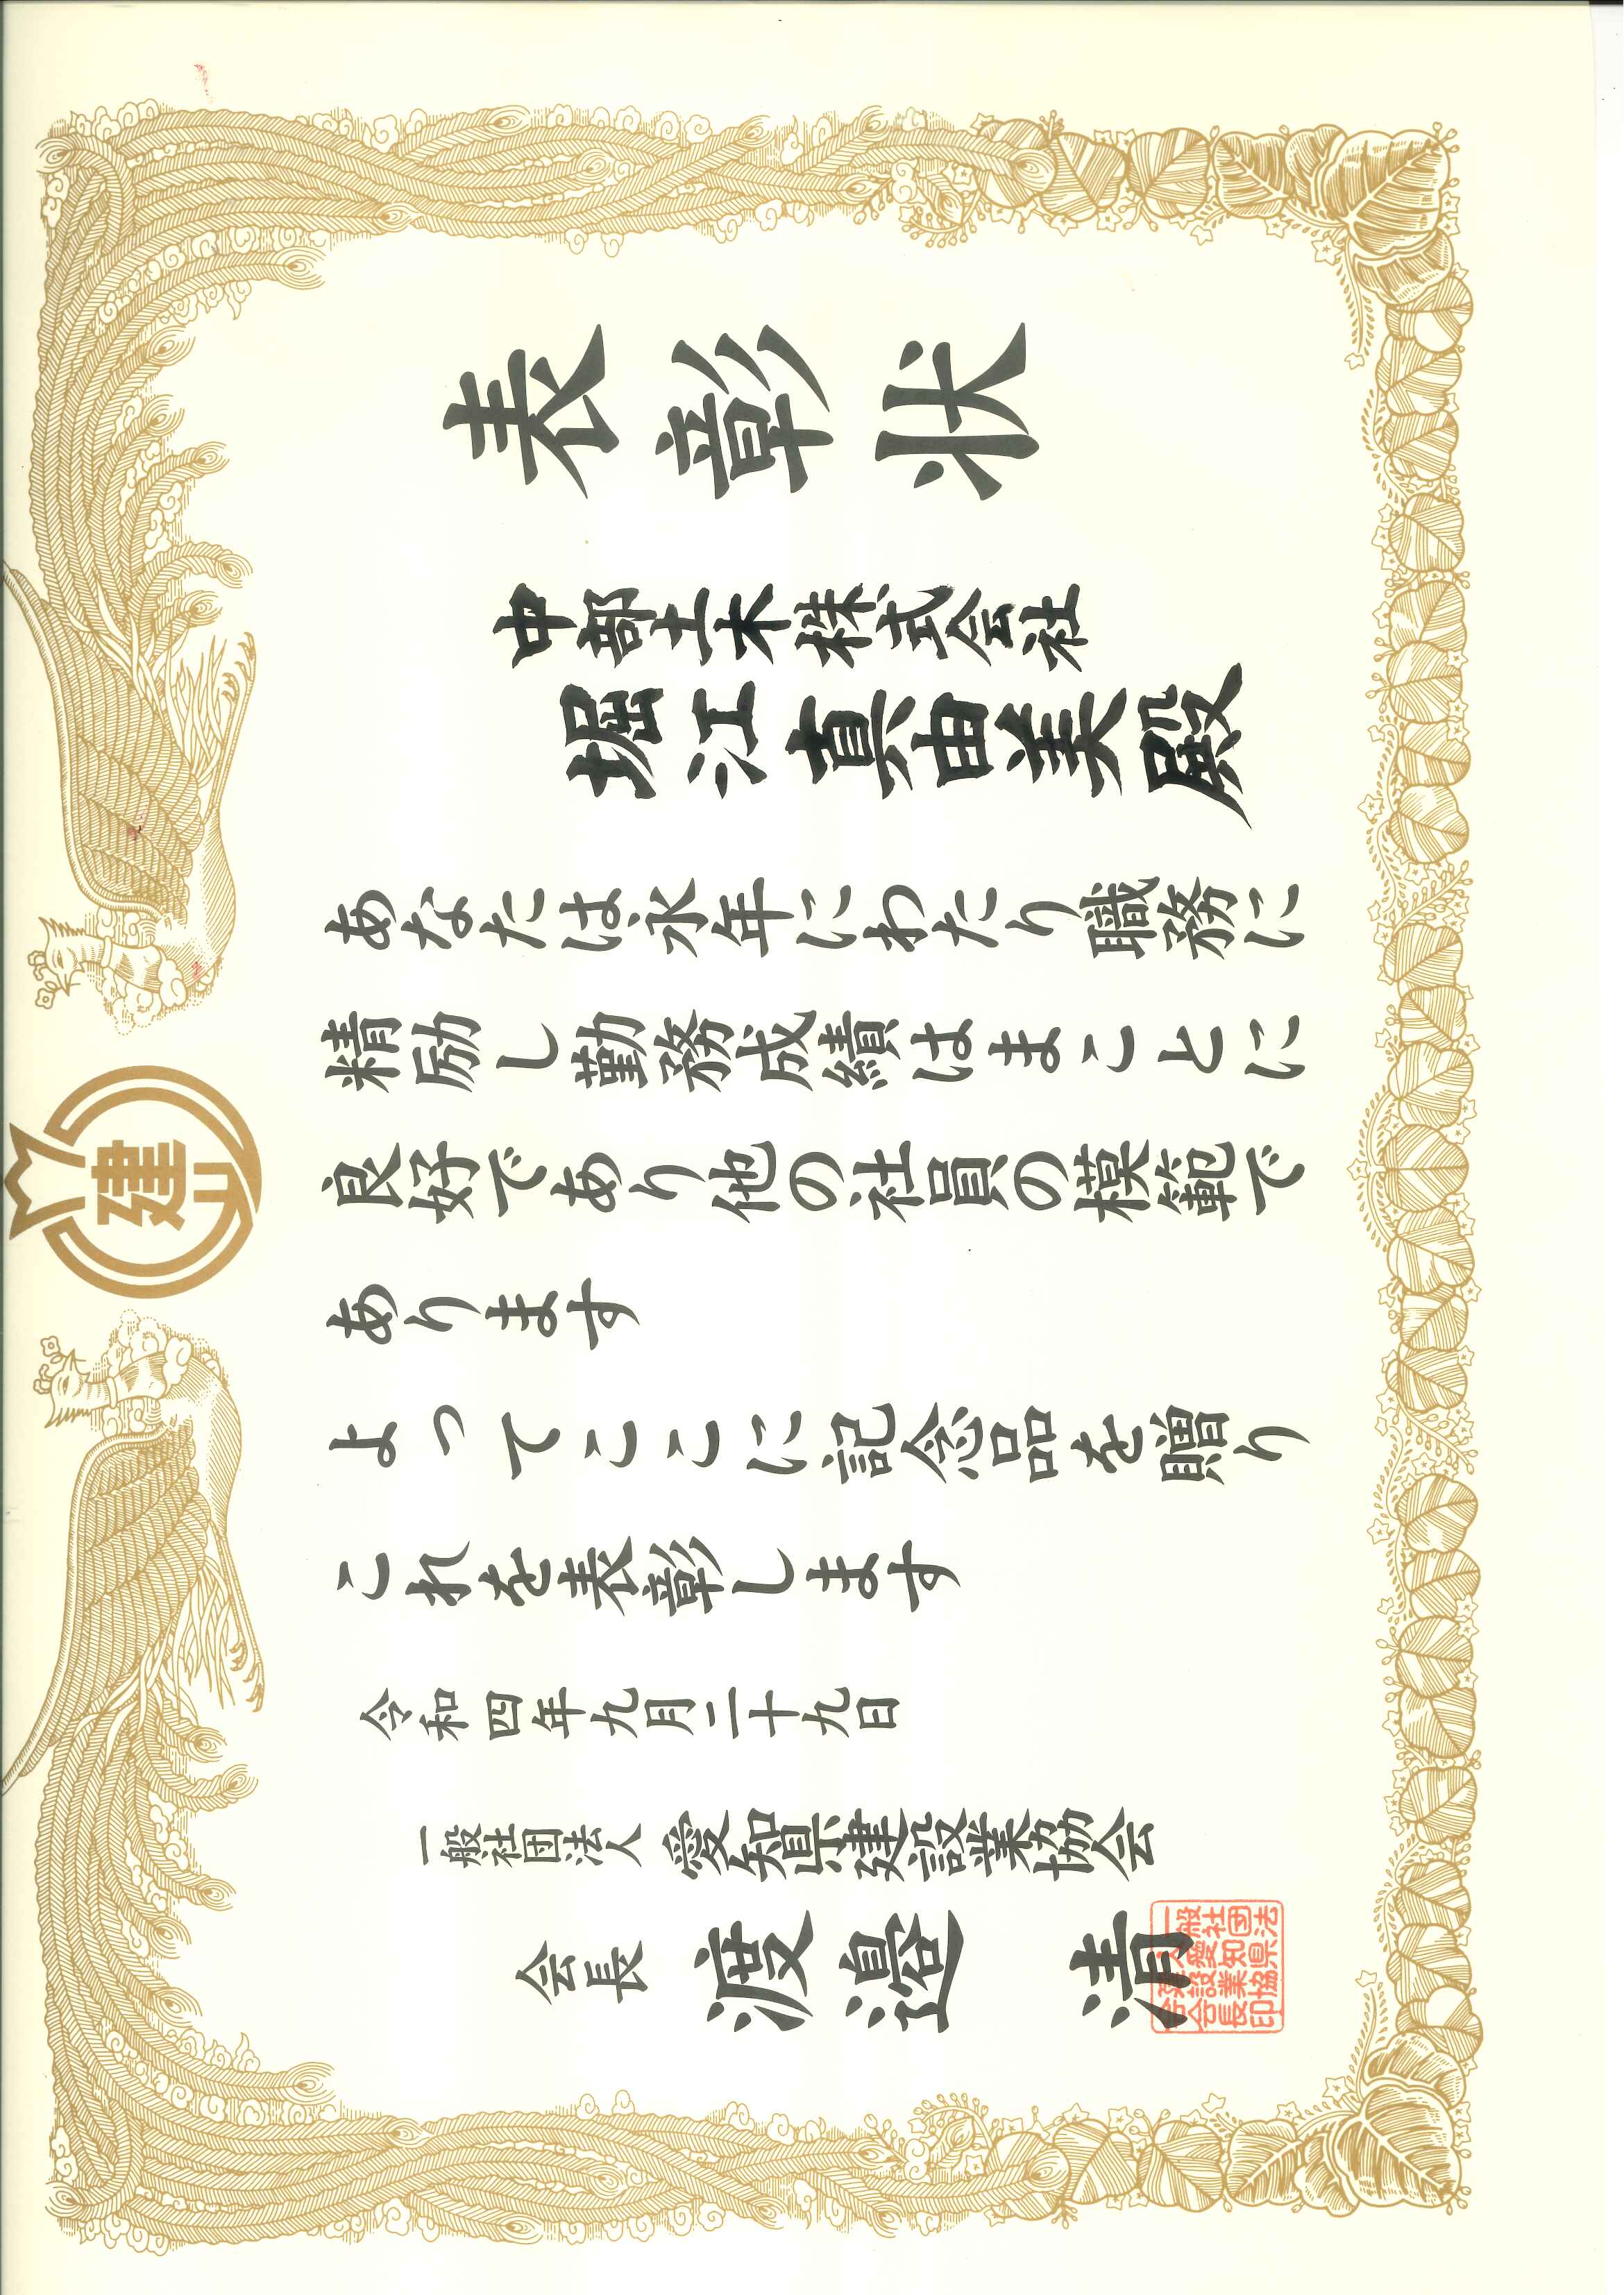 建
表彰状
中部土木株式会社
堀江真由美殿
あなたは永年にわたり職務に
精励し勤務成績はまことに
良好であり他の社員の模範で
あります
よってここに記念品を贈り
これを表彰します
令和四年九月二十九日
一般社団法人 愛知県建設業協会
会長 渡邉 清
一般社団法
人愛知県
建設業協
会会長印